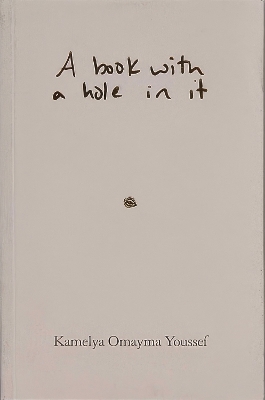 A book with
a hole in it
Kamelya Omayma Youssef